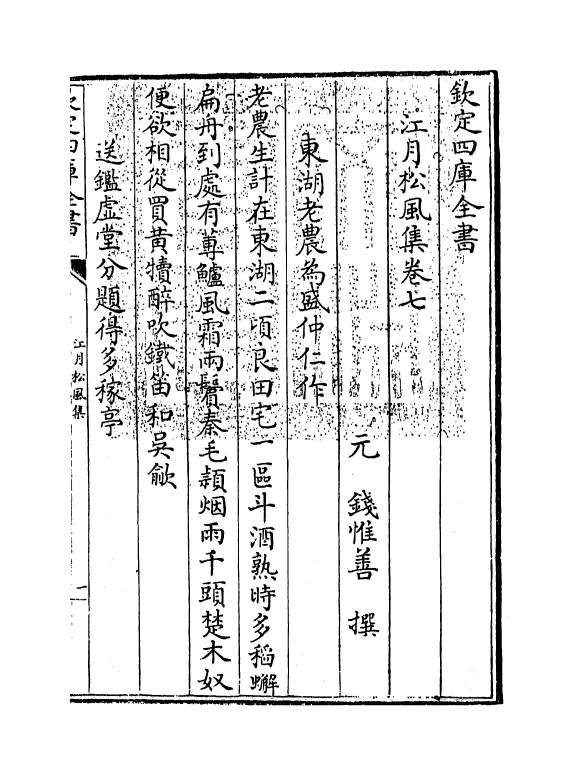 欽定四庫全書
江月松風集卷七
元　錢惟善　撰
東湖老農為盛仲仁作
老農生計在東湖二頃良田宅一區斗酒熟時多稻蠏
扁舟到處有蓴鱸風霜兩鬢秦毛頴烟雨千頭楚木奴
便欲相從買黃犢醉吹鐵笛和吳歈
送鑑虛堂分題得多稼亭
欽定四庫全書
江月松風集
一